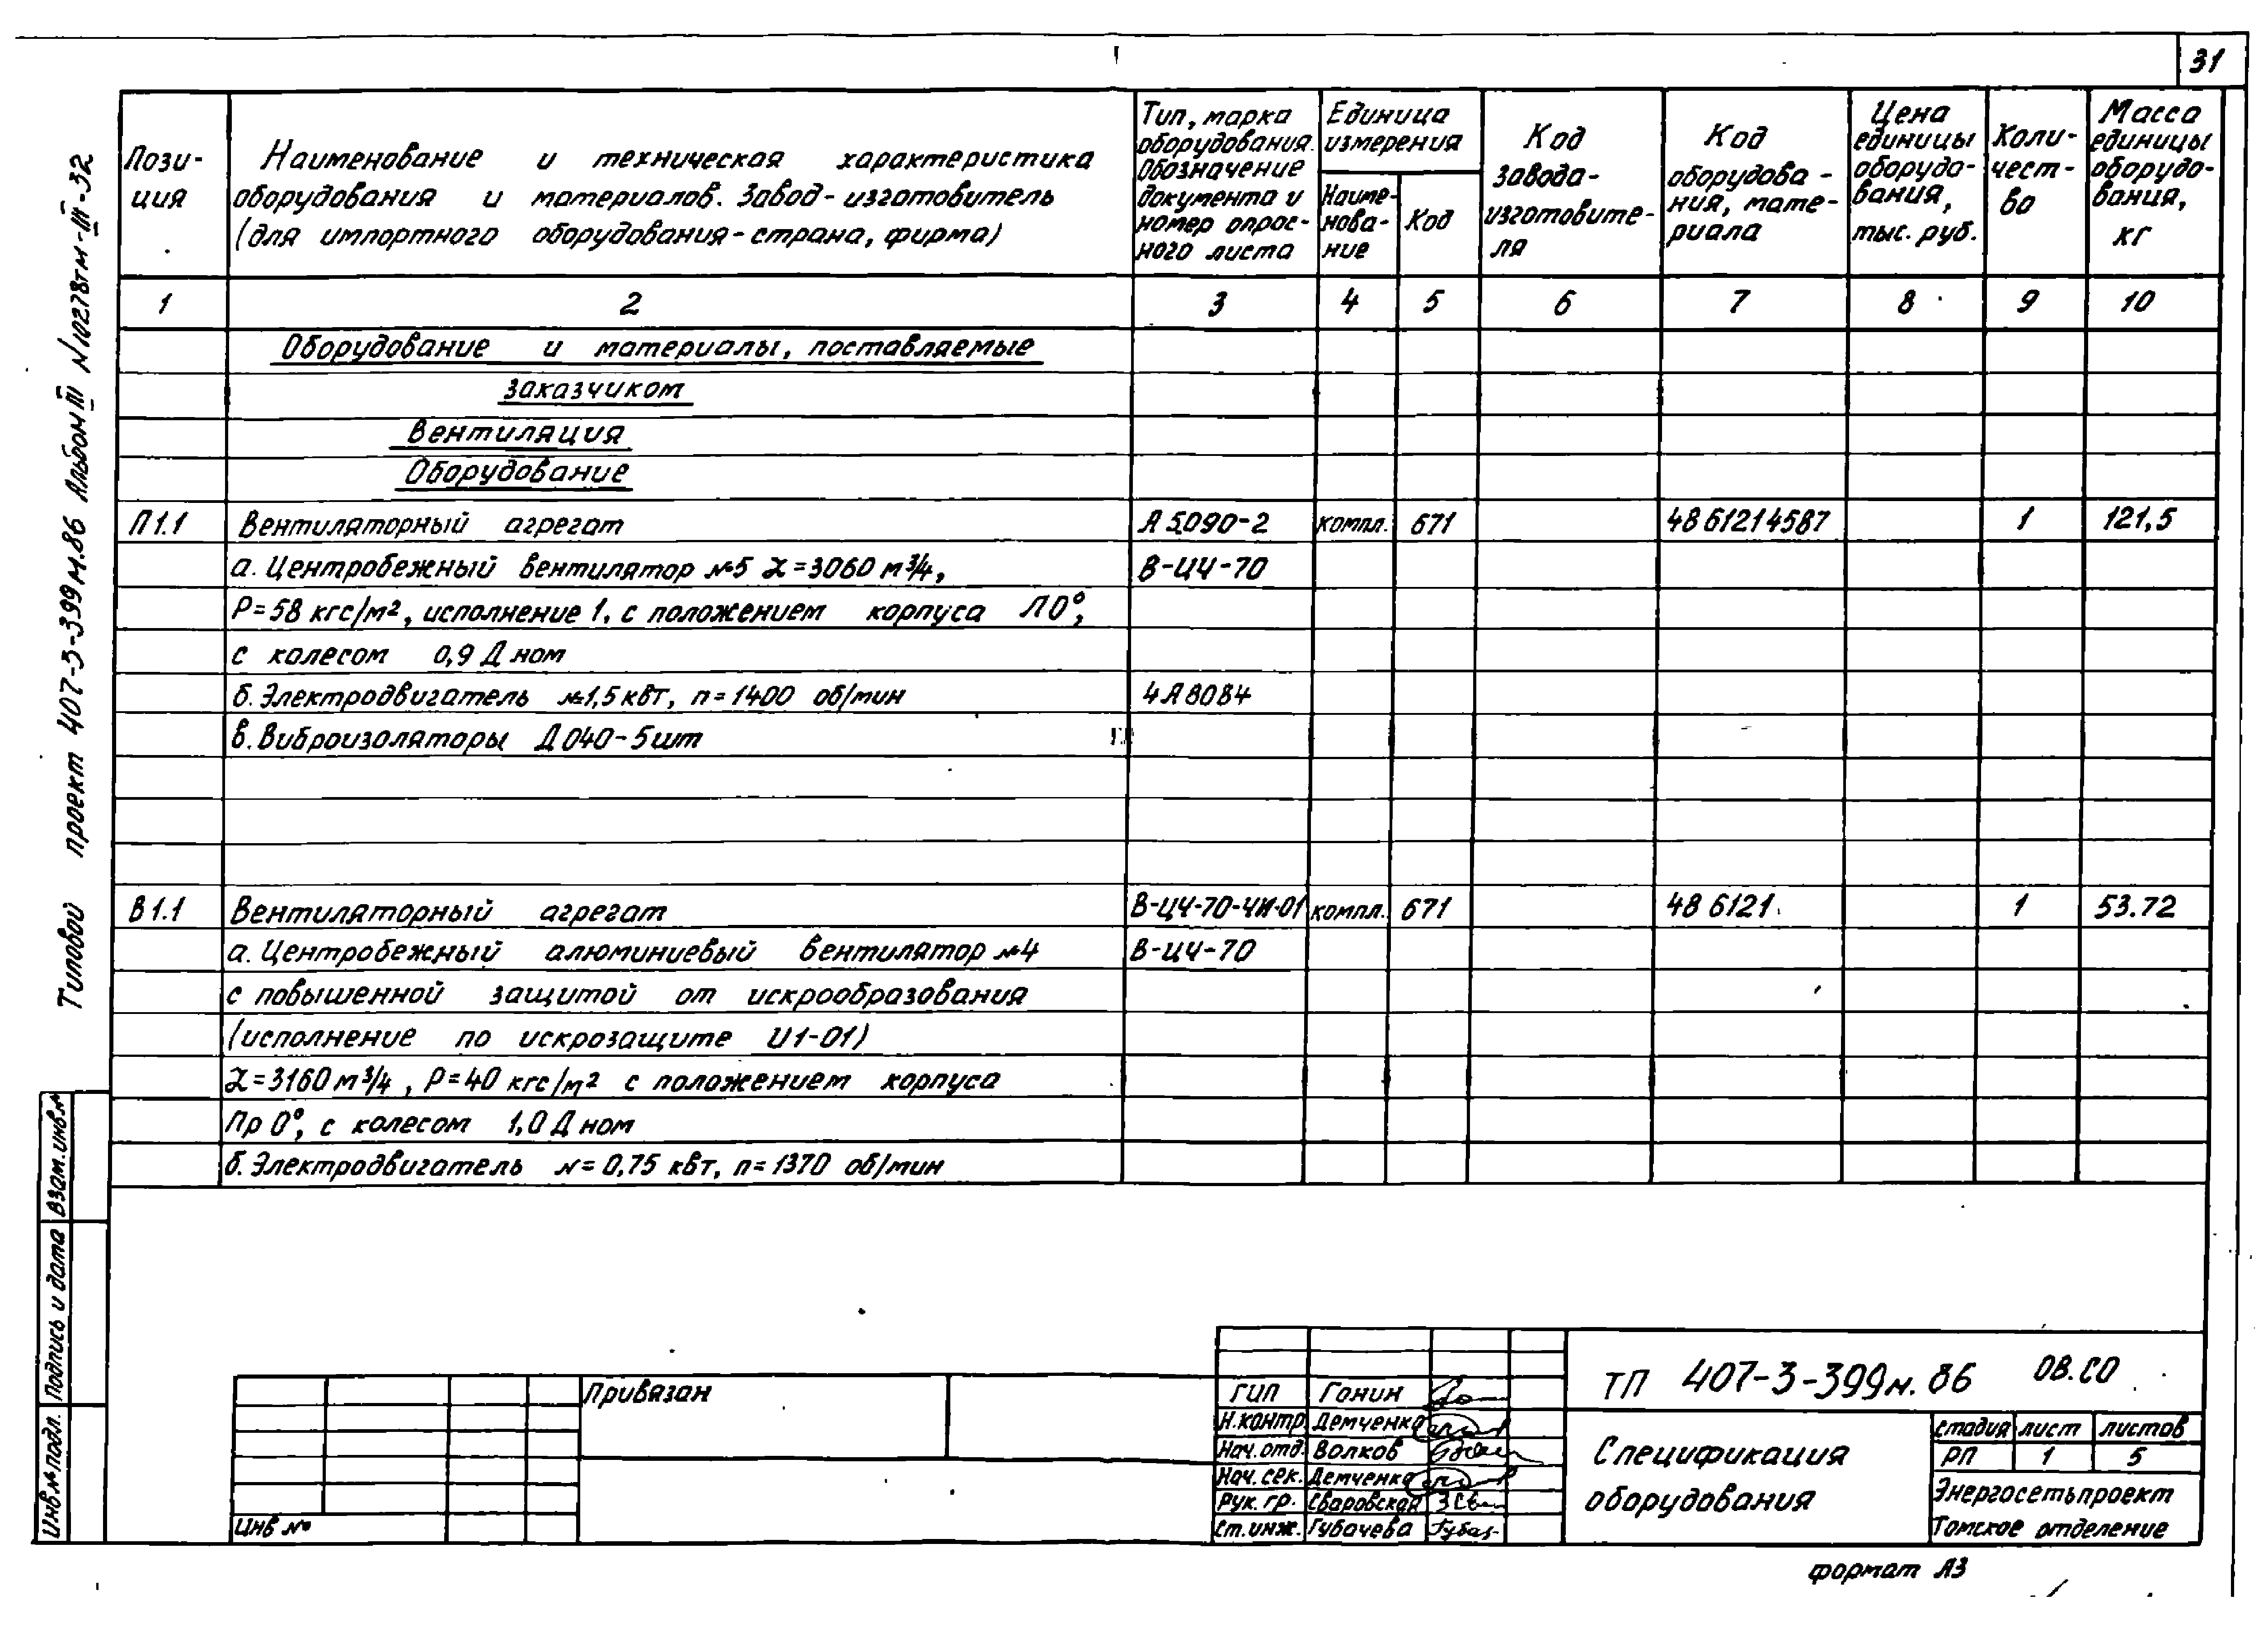 31
Пози-
ция
Наименование и техническая характеристика
оборудования и материалов. Завод-изготовитель
(для импортного оборудования-страна, фирма)
Тип, марка
оборудования.
Обозначение
документа и
номер опрос-
ного листа
Единица
измерения
Наиме-
нова-
ние
Код
Код
завода-
изготовите-
ля
Код
оборудова-
ния, мате-
риала
Цена
единицы
оборудо-
вания,
тыс. руб.
Коли-
чест-
во
Масса
единицы
оборудо-
вания,
кг
1 2 3 4 5 6 7 8 9 10
Оборудование и материалы, поставляемые
заказчиком
Вентиляция
Оборудование
П1.1 Вентиляторный агрегат А 5.090-2 компл. 671 48 61214587 1 121,5
а. Центробежный вентилятор №5 L=3060 м³/ч, В-Ц4-70
P=58 кгс/м², исполнение 1, с положением корпуса Л0°,
с колесом 0,9 Дном
б. Электродвигатель N=1,5 квт, n=1400 об/мин 4А80В4
в. Виброизоляторы Д040-5шт
В1.1 Вентиляторный агрегат В-Ц4-70-4И-01 компл. 671 48 6121 1 53.72
а. Центробежный алюминиевый вентилятор №4 В-Ц4-70
с повышенной защитой от искрообразования
(исполнение по искрозащите И1-01)
L=3160 м³/ч, P=40 кгс/м² с положением корпуса
Пр 0°, с колесом 1,0 Дном
б. Электродвигатель N=0,75 квт, n=1370 об/мин
Типовой проект 407-3-399м.86 Альбом III N10278тм-III-32
Взам.инв.№
Подпись и дата
Инв.№подл.
Привязан
Инв №
ГИП Гонин
Н.контр. Демченко
Нач.отд. Волков
Нач. сек. Демченко
Рук. гр. Сваровская
Ст.инж. Губачева
ТП 407-3-399м.86 ОВ.СО
Спецификация
оборудования
стадия лист листов
РП 1 5
Энергосетьпроект
Томское отделение
формат А3